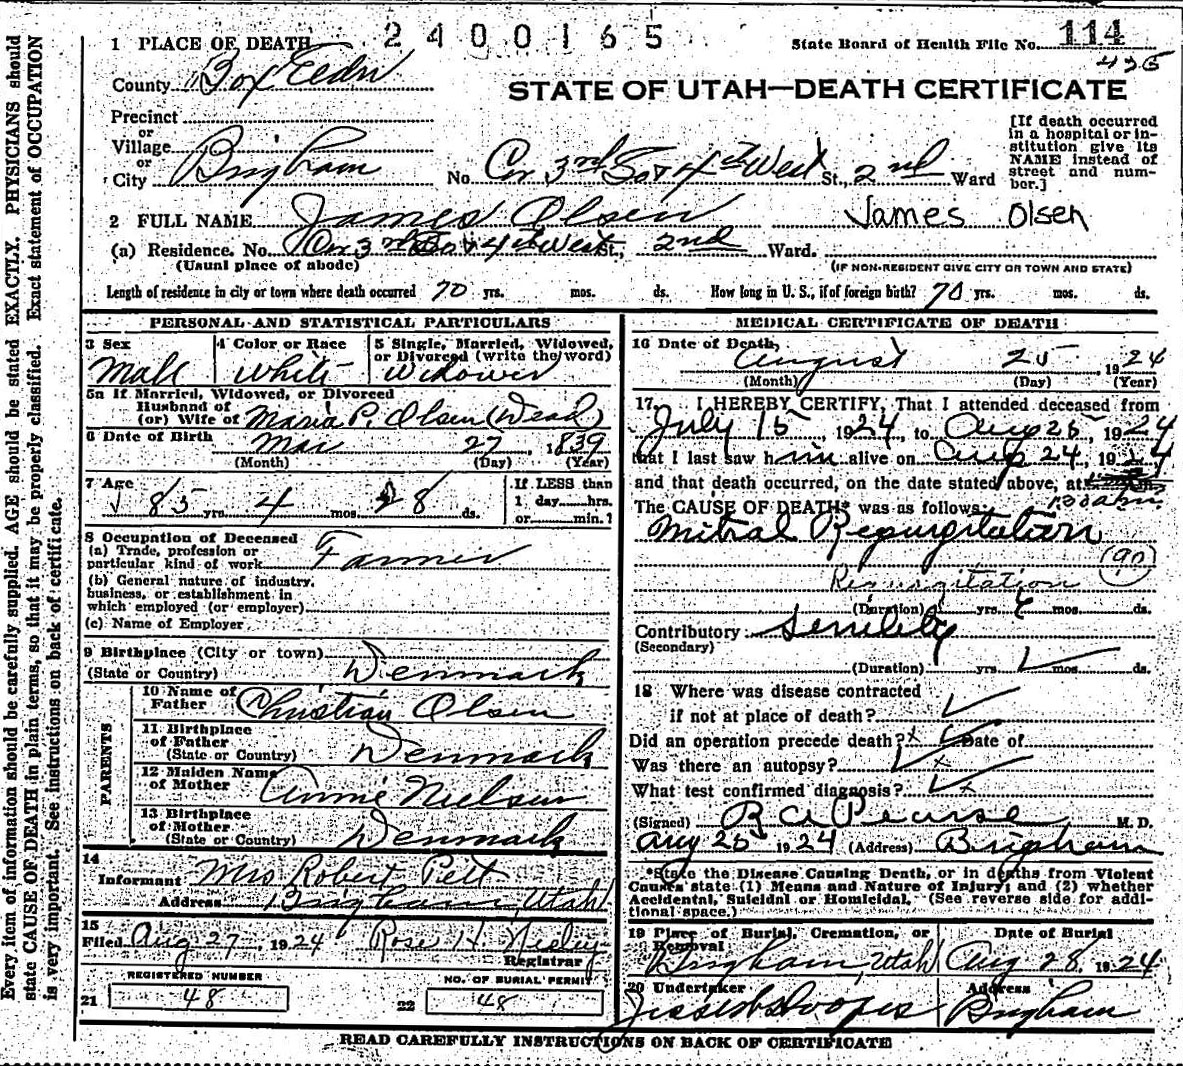 2400165
1 PLACE OF DEATH
State Board of Health File No. 114
County Box Elder
STATE OF UTAH—DEATH CERTIFICATE
Precinct
or
Village
or
City Brigham
No. Cor 3rd So & 4th West St., 2nd Ward
[If death occurred
in a hospital or in-
stitution give its
NAME instead of
street and num-
ber.]
2 FULL NAME James Olsen James Olsen
(a) Residence. No. Cor 3rd So & 4th West St., 2nd Ward.
(Usual place of abode) (IF NON-RESIDENT GIVE CITY OR TOWN AND STATE)
Length of residence in city or town where death occurred 70 yrs. mos. ds. How long in U. S., if of foreign birth? 70 yrs. mos. ds.
PERSONAL AND STATISTICAL PARTICULARS
3 Sex 4 Color or Race 5 Single, Married, Widowed,
or Divorced (write the word)
Male White Widower
5a If Married, Widowed, or Divorced
Husband of
(or) Wife of Maria P. Olsen (Dead)
6 Date of Birth Mar 27, 1839
(Month) (Day) (Year)
7 Age 85 yrs. 4 mos. 28 ds.
If LESS than
1 day hrs.
or min.?
8 Occupation of Deceased
(a) Trade, profession or
particular kind of work Farmer
(b) General nature of industry,
business, or establishment in
which employed (or employer)
(c) Name of Employer
9 Birthplace (City or town)
(State or Country) Denmark
PARENTS
10 Name of
Father Christian Olsen
11 Birthplace
of Father
(State or Country) Denmark
12 Maiden Name
of Mother Annie Nielsen
13 Birthplace
of Mother
(State or Country) Denmark
14
Informant Mrs Robert Pett
Address Brigham, Utah
15
Filed Aug 27, 1924 Rose H. Neeley
Registrar
REGISTERED NUMBER NO. OF BURIAL PERMIT
21 48 22 48
MEDICAL CERTIFICATE OF DEATH
16 Date of Death,
August 25, 1924
(Month) (Day) (Year)
17 I HEREBY CERTIFY, That I attended deceased from
July 15, 1924, to Aug 25, 1924
that I last saw him alive on Aug 24, 1924
and that death occurred, on the date stated above, at
1:30 a.m.
The CAUSE OF DEATH* was as follows:
Mitral Regurgitation
(90)
Regurgitation
(Duration) yrs. 6 mos. ds.
Contributory Senility
(Secondary)
(Duration) yrs. mos. ds.
18 Where was disease contracted
if not at place of death?
Did an operation precede death? x Date of
Was there an autopsy? x
What test confirmed diagnosis? x
(Signed) R A Pearse M. D.
Aug 25 1924 (Address) Brigham
*State the Disease Causing Death, or in deaths from Violent
Causes state (1) Means and Nature of Injury; and (2) whether
Accidental, Suicidal or Homicidal. (See reverse side for addi-
tional space.)
19 Place of Burial, Cremation, or
Removal Date of Burial
Brigham, Utah Aug 28, 1924
20 Undertaker Address
Brigham
READ CAREFULLY INSTRUCTIONS ON BACK OF CERTIFICATE
Every item of information should be carefully supplied. AGE should be stated EXACTLY. PHYSICIANS should
state CAUSE OF DEATH in plain terms, so that it may be properly classified. Exact statement of OCCUPATION
is very important. See instructions on back of certificate.